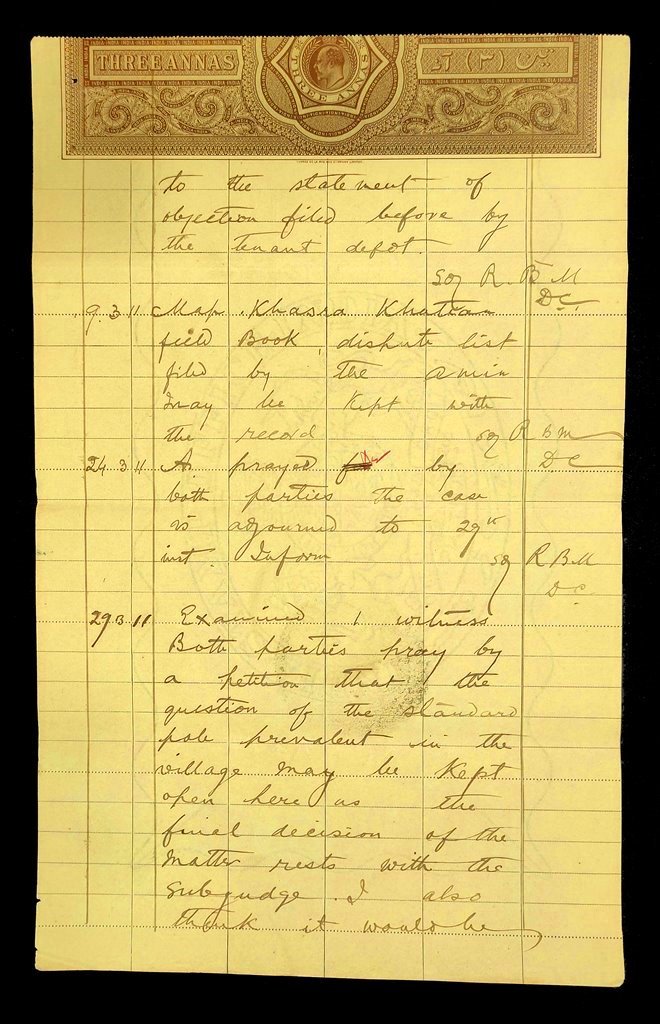 THREE ANNAS
THREE ANNAS
تین (٣) آنہ
to the statement of
objection filed before by
the tenant defdt.
Sd/ R. B M
D.C.
9. 3 11 Map Khasra Khatian
field Book, dispute list
filed by the amin
may be kept with
the record Sd/ R B M
D.C
24. 3 11 As prayed for by
both parties the case
is adjourned to 29th
inst. Inform Sd/ R B M
D.C.
29 3 11 Examined 1 witness
Both parties pray by
a petition that the
question of the standard
pole prevalent in the
village may be kept
open here as the
final decision of the
matter rests with the
Subjudge. I also
think it would be